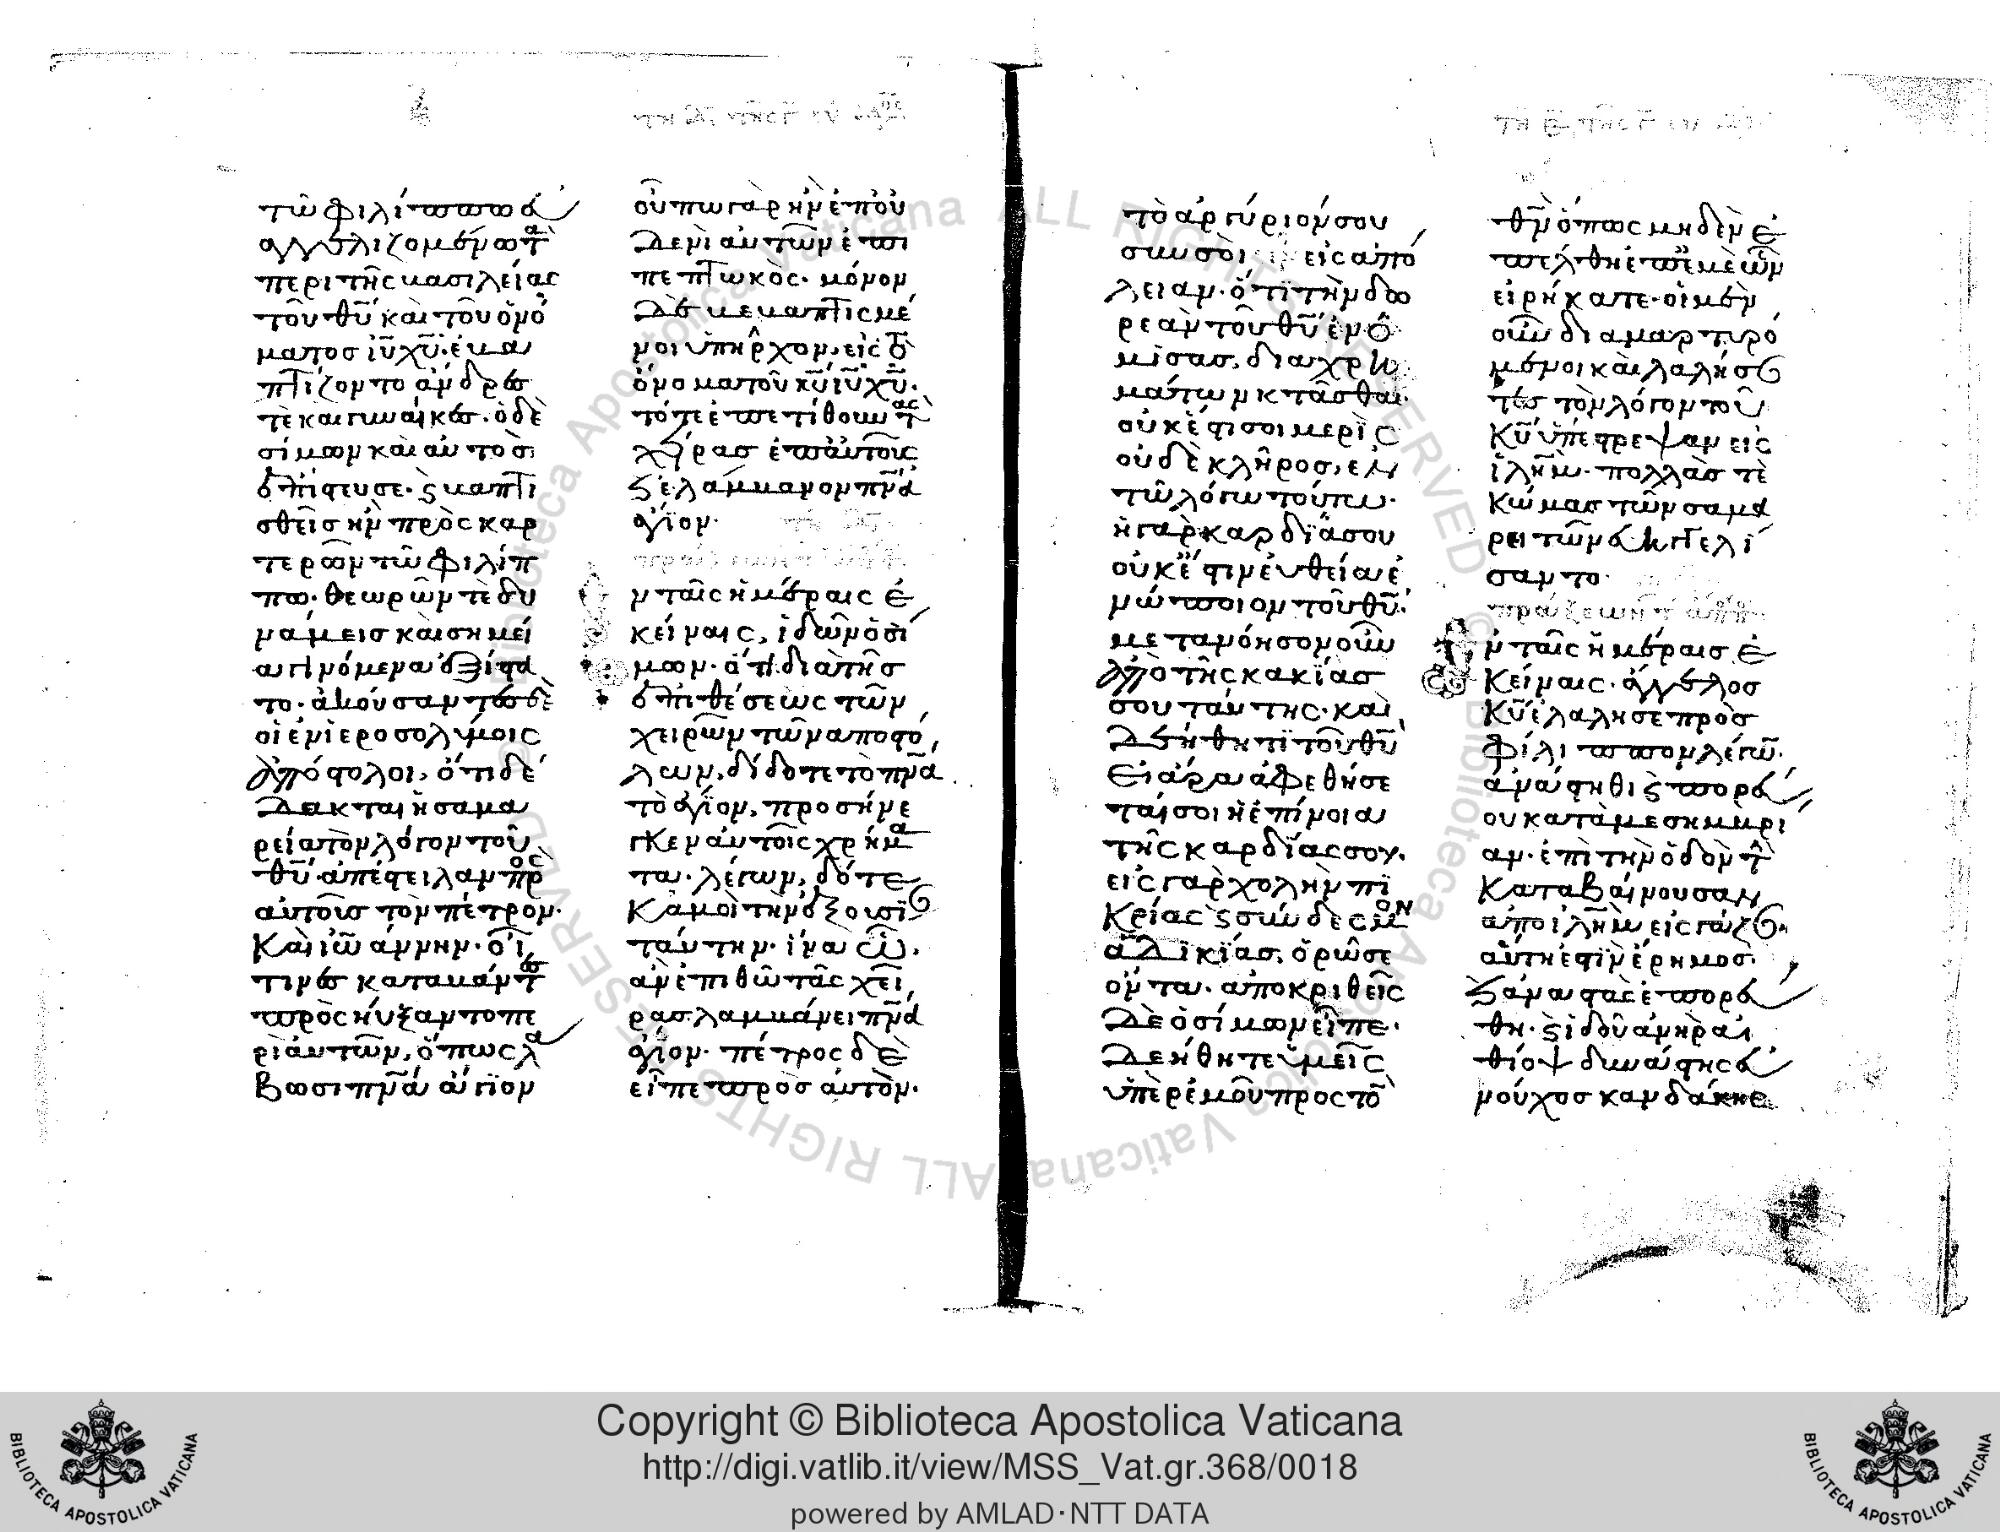 τῶ φιλίππω εὐ
αγγελιζομένω τὰ
περὶ τῆς βασιλείας
τοῦ θῦ καὶ τοῦ ὀνό
ματος ἰῦ χῦ· ἐβα
πτίζοντο ἄνδρες
τὲ και γυναίκες· ὁ δὲ
σίμων καὶ αὐτὸσ
ἐπίστευσε· ϛ βαπτι
σθεῖσ ἦν πρὸς καρ
τερῶν τῶ φιλίπ
πω· θεωρῶν τὲ δυ
νάμεισ καὶ σημεῖ
α γινόμενα ἐξίστα
το· ἀκούσαντες δὲ
οἱ ἐν ἱεροσολύμοις
ἀπόστολοι, ὅτι δέ
δεκται ἡ σαμα
ρεία τὸν λόγον τοῦ
θῦ· ἀπέστειλαν πρὸς
αὐτοὺσ τὸν πέτρον·
Καὶ ἰῶάννην· οἵ
τινες καταβάντες
προσηύξαντο πε
ρὶ αὐτῶν, ὅπως λά
βωσι πνᾶ ἅγιον
οὔπω γὰρ ἦν ἐπ' οὐ
δενὶ αὐτῶν ἐπι
πεπτωκὸς· μόνον
δὲ βεβαπτισμέ
νοι ὑπῆρχον, εἰς τὸ
ὄνομα τοῦ κῦ ἰῦ χῦ·
τότε ἐπετίθουν τὰς
χεῖρασ ἐπ' αὐτοὺς
ϛ ἐλάμβανον πνᾶ
ἅγϊον·
ν ταῖς ἡμέραις ἐ
κείναις, ἰδὼν ὁ σί
μων· ὅτι διὰ τῆσ
ἐπιθέσεως τῶν
χειρῶν τῶν αποστό
λων, δίδοτε τὸ πνᾶ
τὸ ἅγϊον, προσήνε
γκεν αὐτοῖς χρήμα
τα· λέγων, δότε
Καμοὶ τὴν ἐξουσί
ταύτην· ἵνα ὧ
ἂν ἐπιθῶ τὰς χεῖ
ρας λαμβάνει πνᾶ
ἅγϊον· πέτρος δὲ
εἶπε πρὸσ αὐτὸν·
τὸ ἀργύριόν σου
συν σοὶ εἰς ἀπώ
λειαν· ὅτϊ τὴν δω
ρεὰν τοῦ θῦ ἐνό
μισασ, δια χρη
μάτων κτᾶσθαι·
οὐκ ἔστι σοι μερὶς
οὐδὲ κλῆρος, ἐν
τῶ λόγω τούτω·
ἡ γαρ καρδΐα σου
οὐκ ἔστιν ἐυθεία ἐ
νώπιον τοῦ θῦ·
μετανόησον οῦν
ἀπὸ τῆς κακΐασ
σου ταύτης· καὶ
δεήθητϊ τοῦ θῦ
Εἰ ἄρα ἀφεθήσε
ταί σοι ἡ ἐπίνοια
τῆς καρδΐας σου,
εἰς γαρ χολὴν πϊ
Κρίας ϛ σύνδεσμον
ἀδϊκΐας, ὁρῶ σε
ὄντα· ἀποκριθεὶς
δὲ ὁ σίμων εἶπε·
δεήθητε ὑμεῖς
ὑπὲρ ἐμοῦ προς τὸ
θν̄ ὅπως μηδὲν ἐ
πέλθη ἐπ' ἐμὲ ὧν
εἰρήκατε· οἱ μὲν
οῦν διαμαρτυρό
μενοι καὶ λαλήσα
τες τὸν λόγον τοῦ
Κῦ ὑπέστρεψαν εἰς
ἱλῆμ· πολλὰσ τὲ
Κώμας τῶν σαμα
ρειτῶν εὐηγγελί
σαντο·
πράξεων τῶν ἀπο
ν ταῖς ἡμέραισ ἐ
Κείναις· ἄγγελοσ
Κῦ ἐλάλησε πρὸσ
φίλιππον λέγων·
ἀνάστηθι ϛ πορεύ
ου κατὰ μεσημβρί
αν· ἐπὶ τὴν ὁδὸν τὴ
Καταβαίνουσαν
ἀπὸ ἱλῆμ εἰς γάζα·
αὕτη ἐστὶν ἔρημοσ·
ϛ ἀναστὰς ἐπορεύ
θη· ϛ ἰδοῦ ἀνὴρ αἰ
θίοψ δυνάστης εὐ
νούχοσ κανδάκης